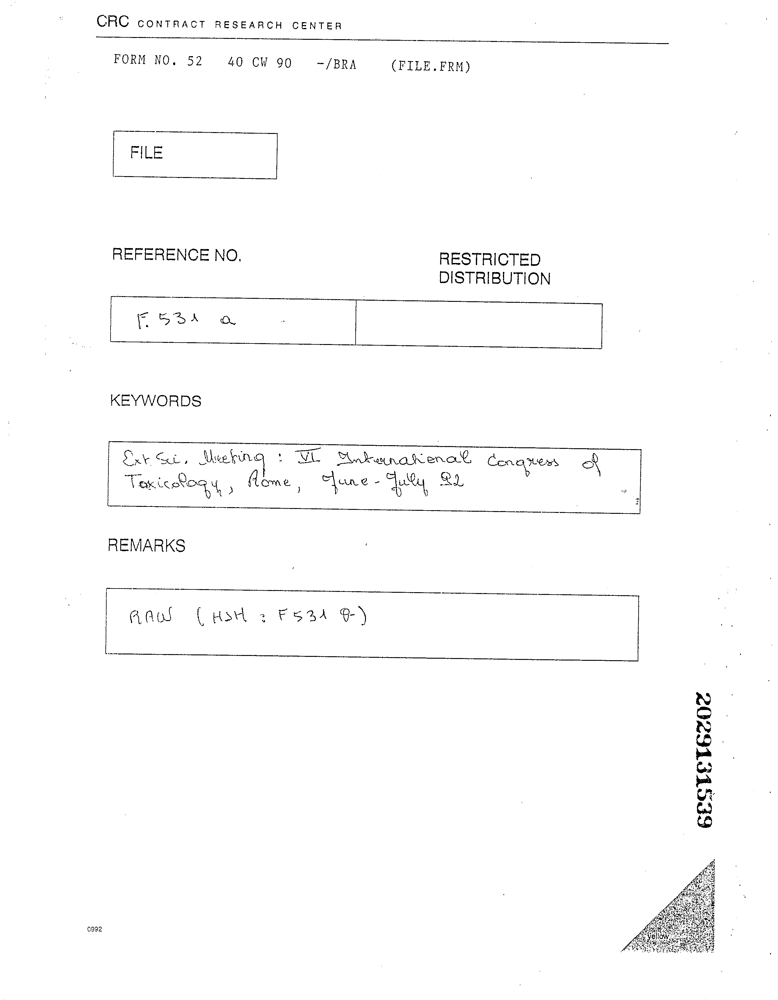 CRC CONTRACT RESEARCH CENTER
FORM NO. 52 40 CW 90 -/BRA (FILE.FRM)
FILE
REFERENCE NO.
RESTRICTED
DISTRIBUTION
F. 531 a
KEYWORDS
Ext Sci. Meeting : VI International Congress of
Toxicology, Rome, June - July 92
REMARKS
RAW (HSH : F 531
2029131539
yellow
0992